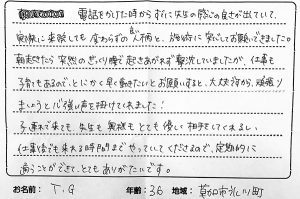 電話をかけた時からすごに先生の感じの良さが出ていて、
実際に来院しても変わらずの人柄と、施術に安心してお願いできました。
朝起きたら突然のぎっくり腰で起きあがれず驚沢していましたが、仕事も
子育てもあるので、とにかく早く動きたいとお願いすると、大丈夫!頑張り
ましょうと心強い声を掛けてくれました!
子連れで来ても、先生も奥様もとても優しく相手をしてくれるし、
仕事後でも来れる時間までやっていてくださるので、定期的に
通うことができて、とてもありがたいです。
お名前: T.G 年齢: 36 地域: 草加市氷川町